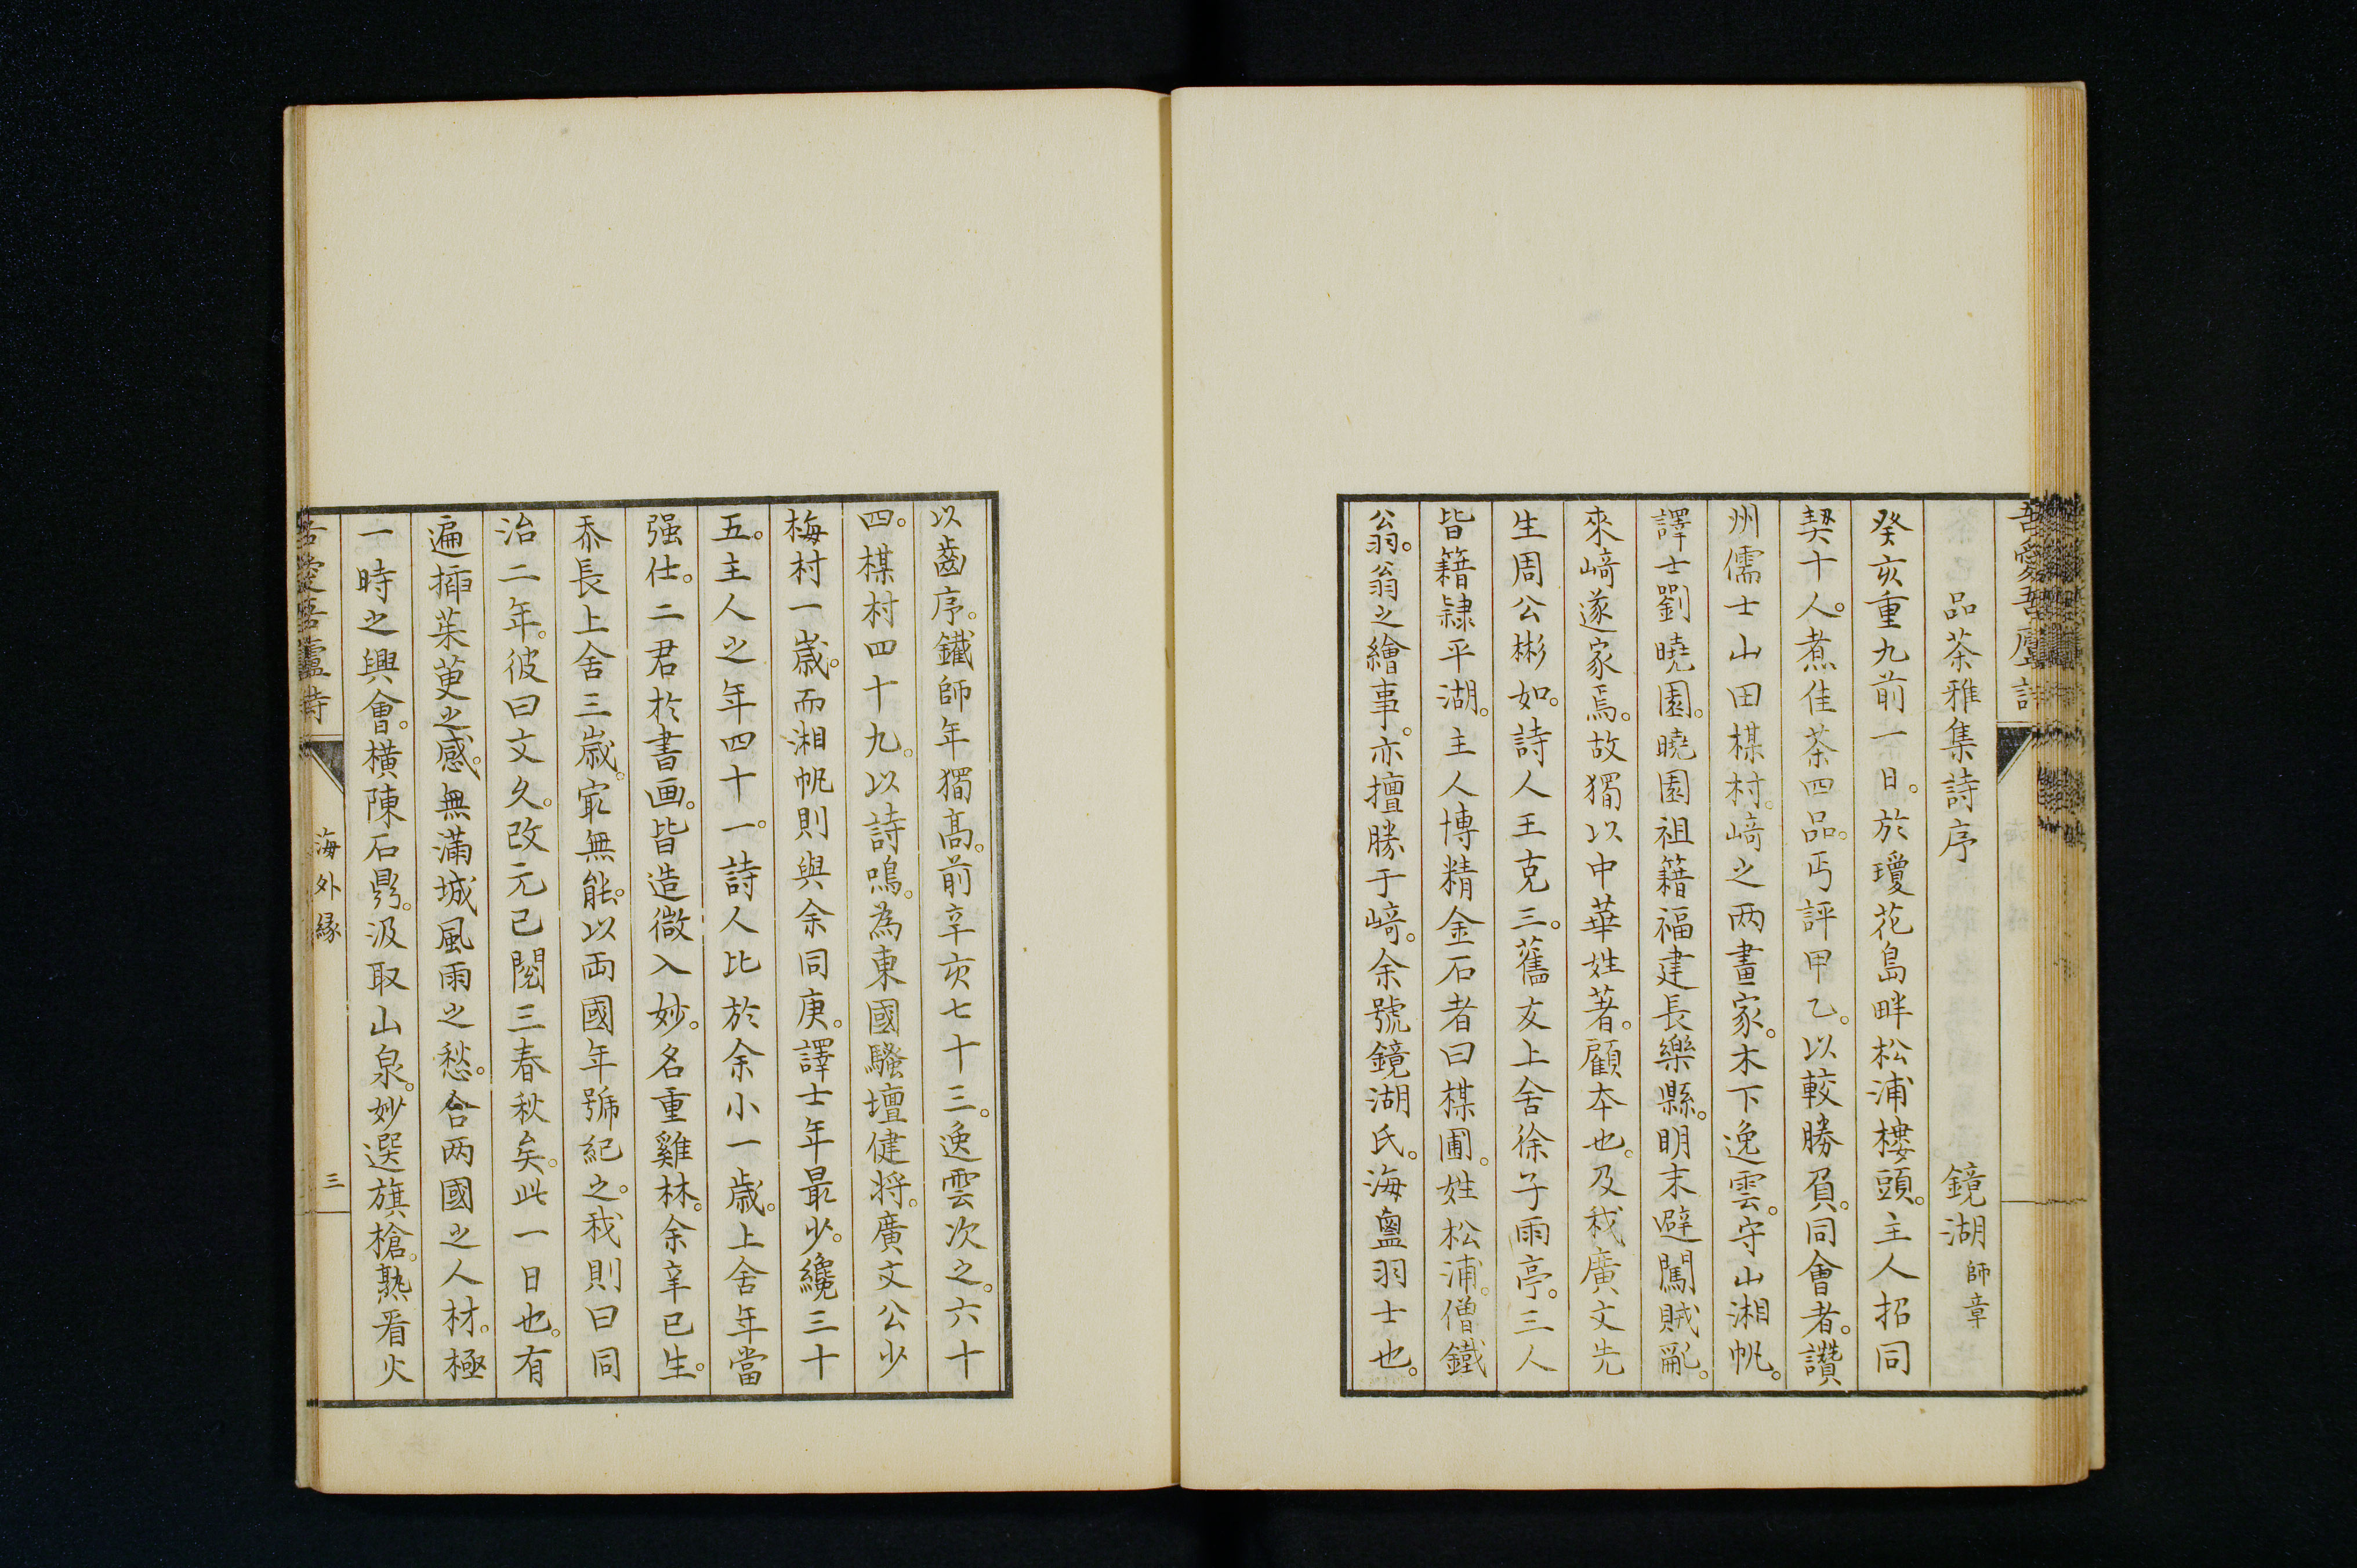 吾愛吾廬詩
品茶雅集詩序　鏡湖 師章
癸亥重九前一日。於瓊花島畔松浦樓頭。主人招同
契十人。煮佳茶四品。丐評甲乙。以較勝負。同會者。讚
州儒士山田楳村。﨑之两畫家。木下逸雲。守山湘帆。
譯士劉曉園。曉園祖籍福建長樂縣。明末避闖賊亂。
來﨑遂家焉。故獨以中華姓著。顧本也。及我廣文先
生周公彬如。詩人王克三。舊友上舍徐子雨亭。三人
皆籍隷平湖。主人博精金石者曰楳圃。姓松浦。僧鐵
翁。翁之繪事。亦擅勝于﨑。余號鏡湖氏。海盬羽士也。
以齒序。鐵師年獨高。前辛亥七十三。逸雲次之。六十
四。楳村四十九。以詩鳴。為東國騷壇健将。廣文公少
梅村一歳。而湘帆則與余同庚。譯士年最少。纔三十
五。主人之年四十一。詩人比於余小一歳。上舍年當
强仕。二君於書画。皆造微入妙。名重雞林。余辛巳生。
忝長上舍三歳。㝡無能。以两國年號紀之。我則曰同
治二年。彼曰文久。改元已閲三春秋矣。此一日也。有
遍揷茱萸之感。無滿城風雨之愁。合两國之人材。極
一時之興會。横陳石鼎。汲取山泉。妙選旗槍。熟看火
吾愛吾廬詩
海外縁
三